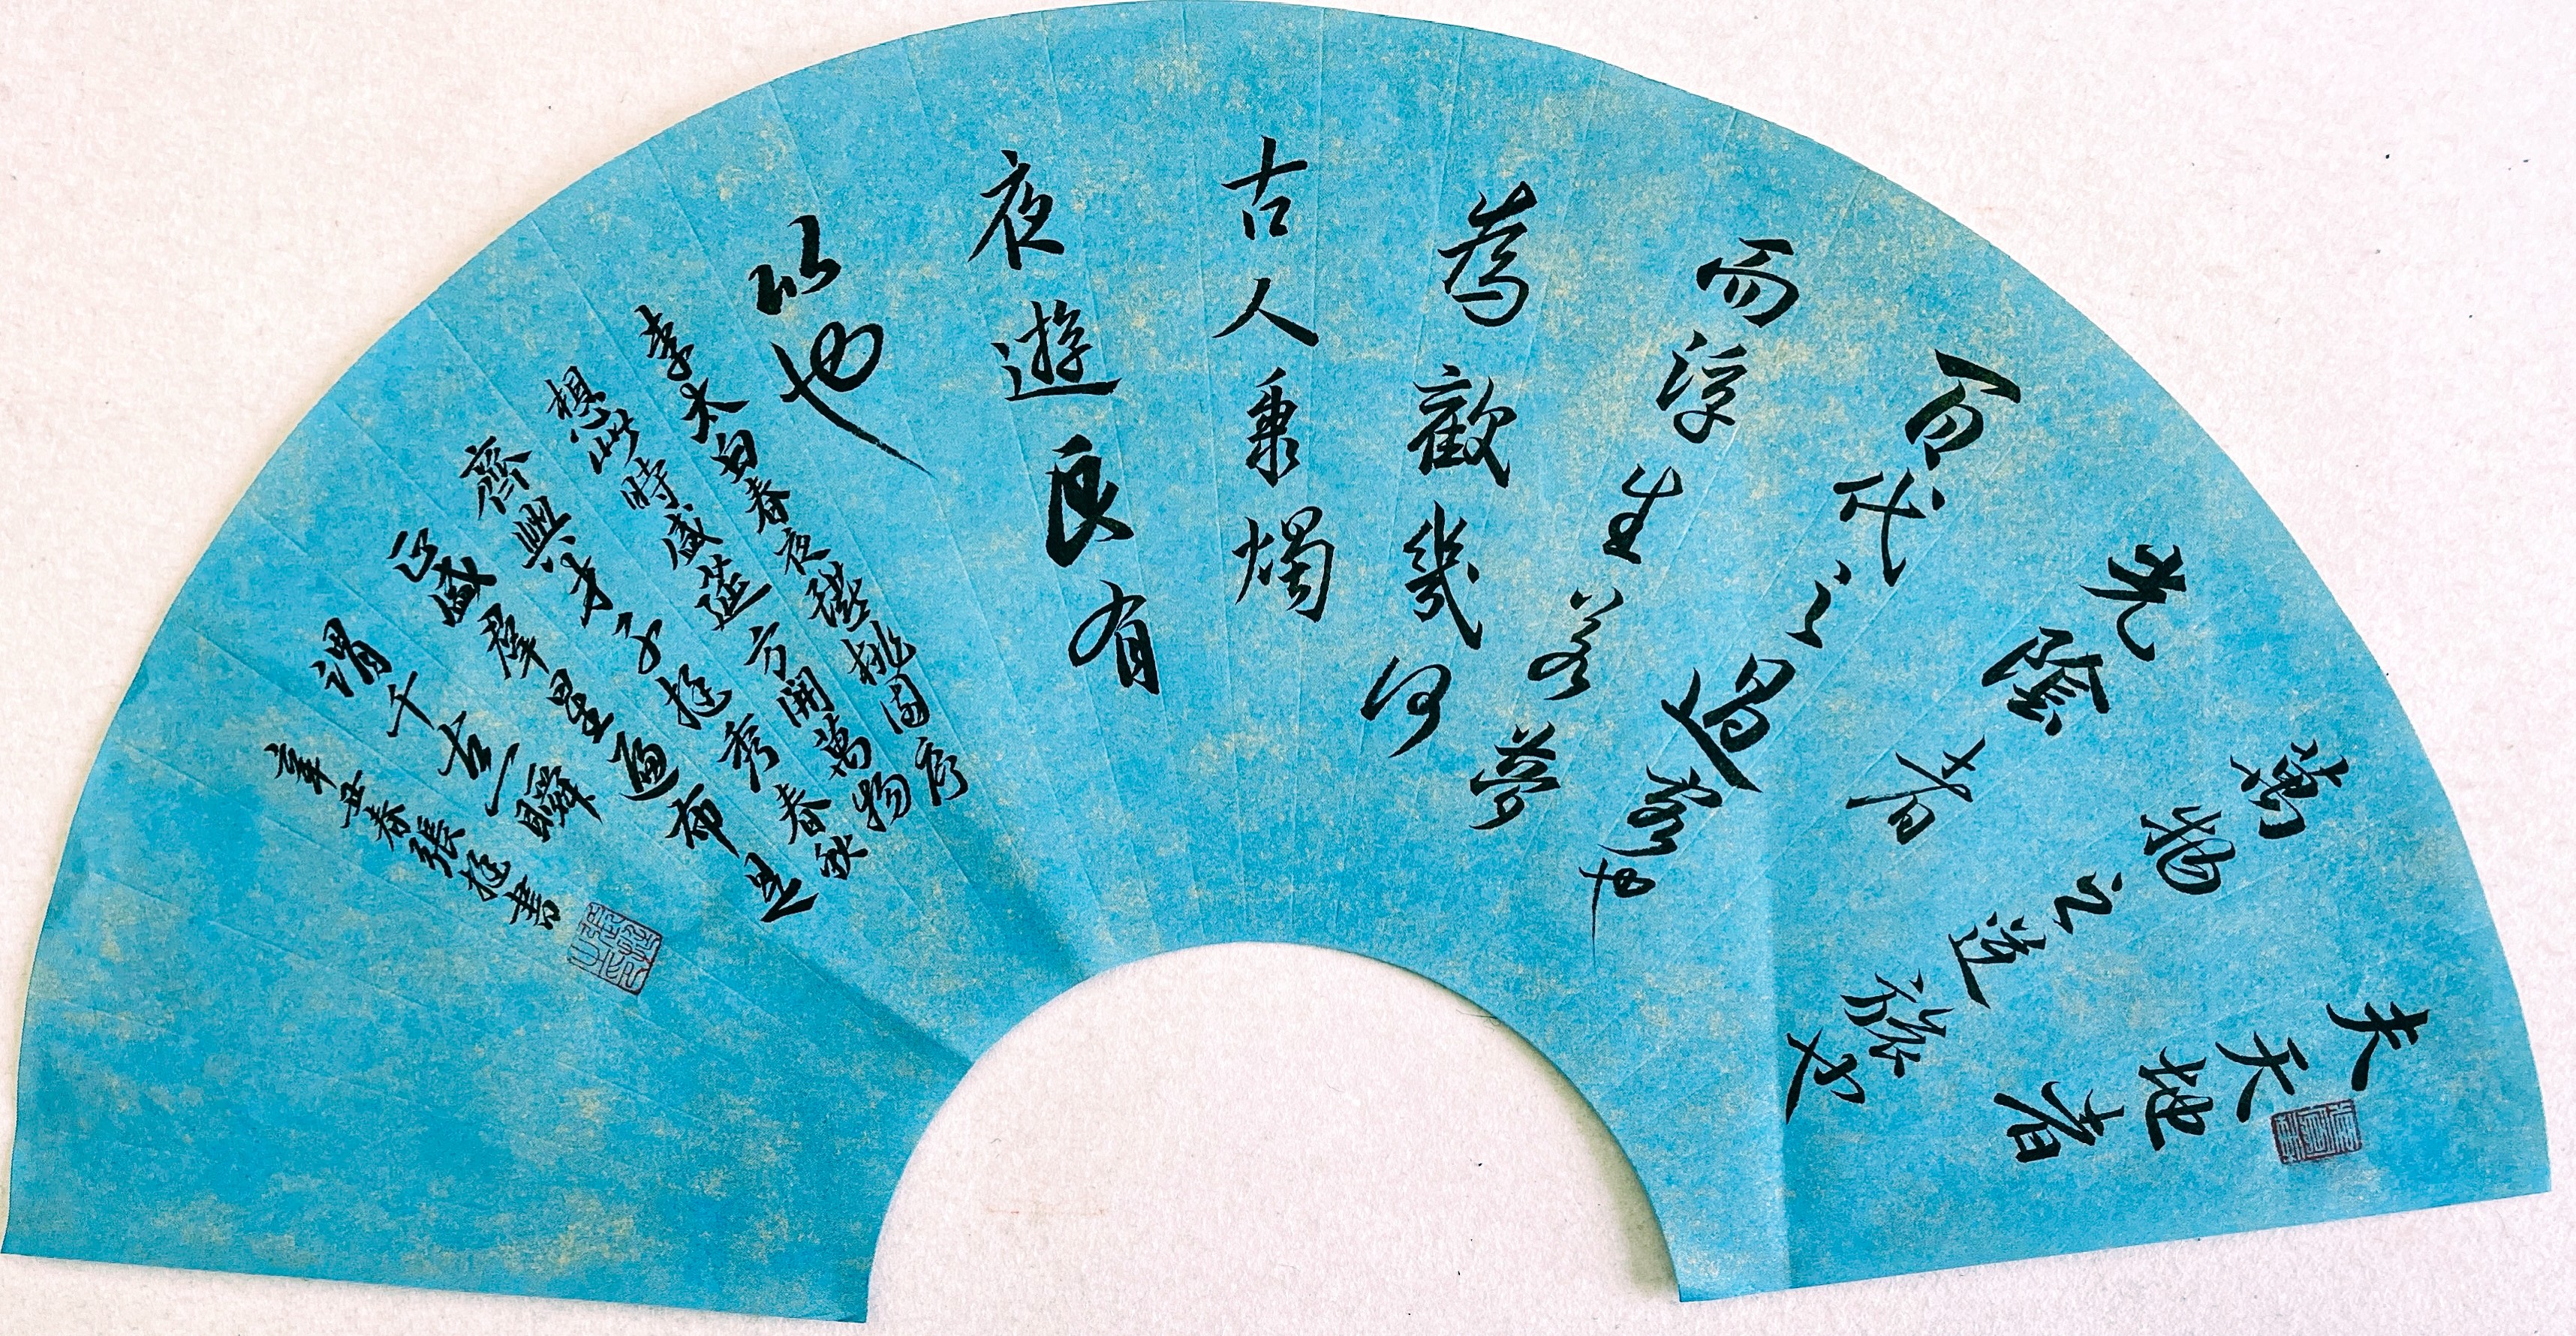 夫天地者
萬物之逆旅也
光陰者
百代之過客也
而浮生若夢
為歡幾何
古人秉燭
夜遊良有
以也
李太白春夜讌桃園序
想此時盛筵方開萬物
齊興才子挺秀春秋
正盛群星遍布是
謂千古一瞬
辛丑春張挺書